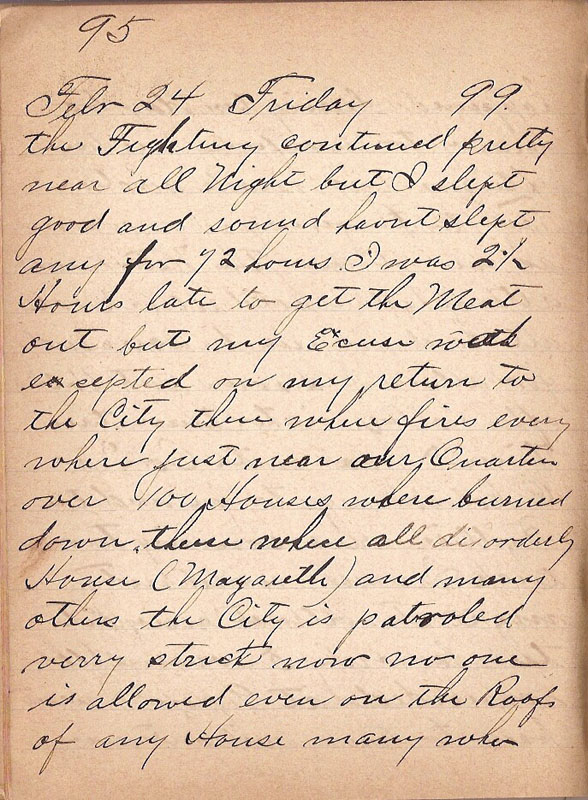 95
Febr 24 Friday 99.
the Fighting contined pretty
near all Night but I slept
good and sound havnt slept
any for 72 hours. I was 2½
Hours late to get the Meat
out but my Excuse was
excepted on my return to
the City there where fires every
where just near our Quarters
over 100 Houses where burned
down, these where all disorderly
House (Magareth) and many
others the City is patroled
verry strict now no one
is allowed even on the Roofs
of any House many who